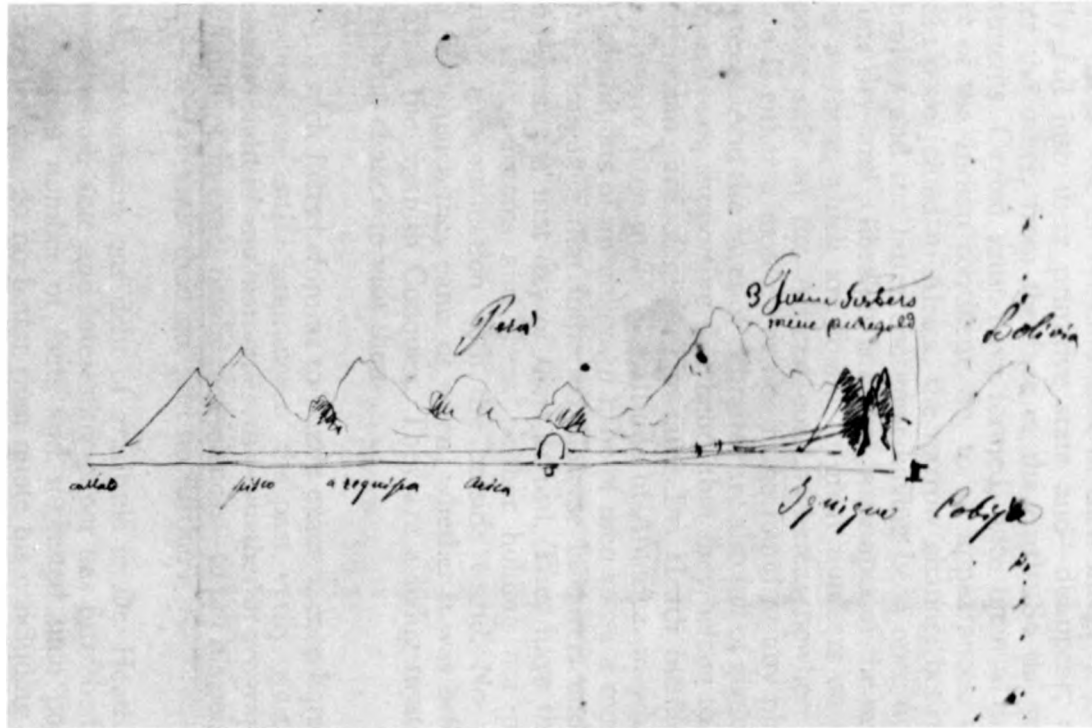 Perú
3
mine puregold
Bolivia
callao
pisco
arequipa
Arica
Iquique
Cobija